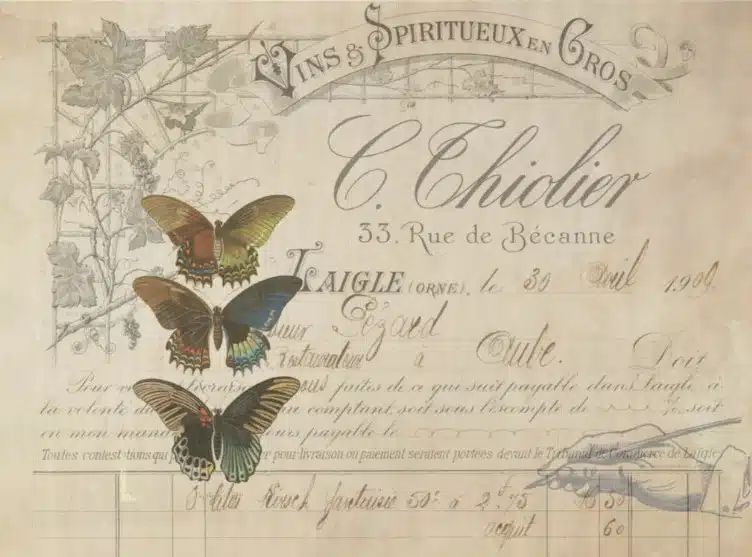 Vins & Spiritueux en Gros
C. Thiolier
33. Rue de Bécanne
Laigle (Orne), le 30 Avril 1909
ieur Lézard
Restaurateur à Aube. Doit
Pour vous faites de ce que suit payable dans Laigle à
la volonté du au comptant, soit sous l'escompte de %, soit
en mon mand ours payable le
Toutes contestations qui pour livraison ou paiement seraient portées devant le Tribunal de Commerce de Laigle
Kirsch fantaisie 50° à 2f.75 50
acquit 60